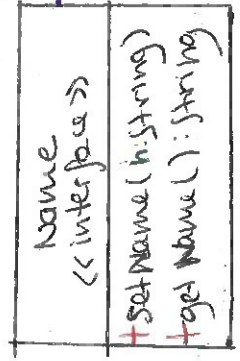 Name
<<interface>>
+SetName(n:String)
+get Name():String